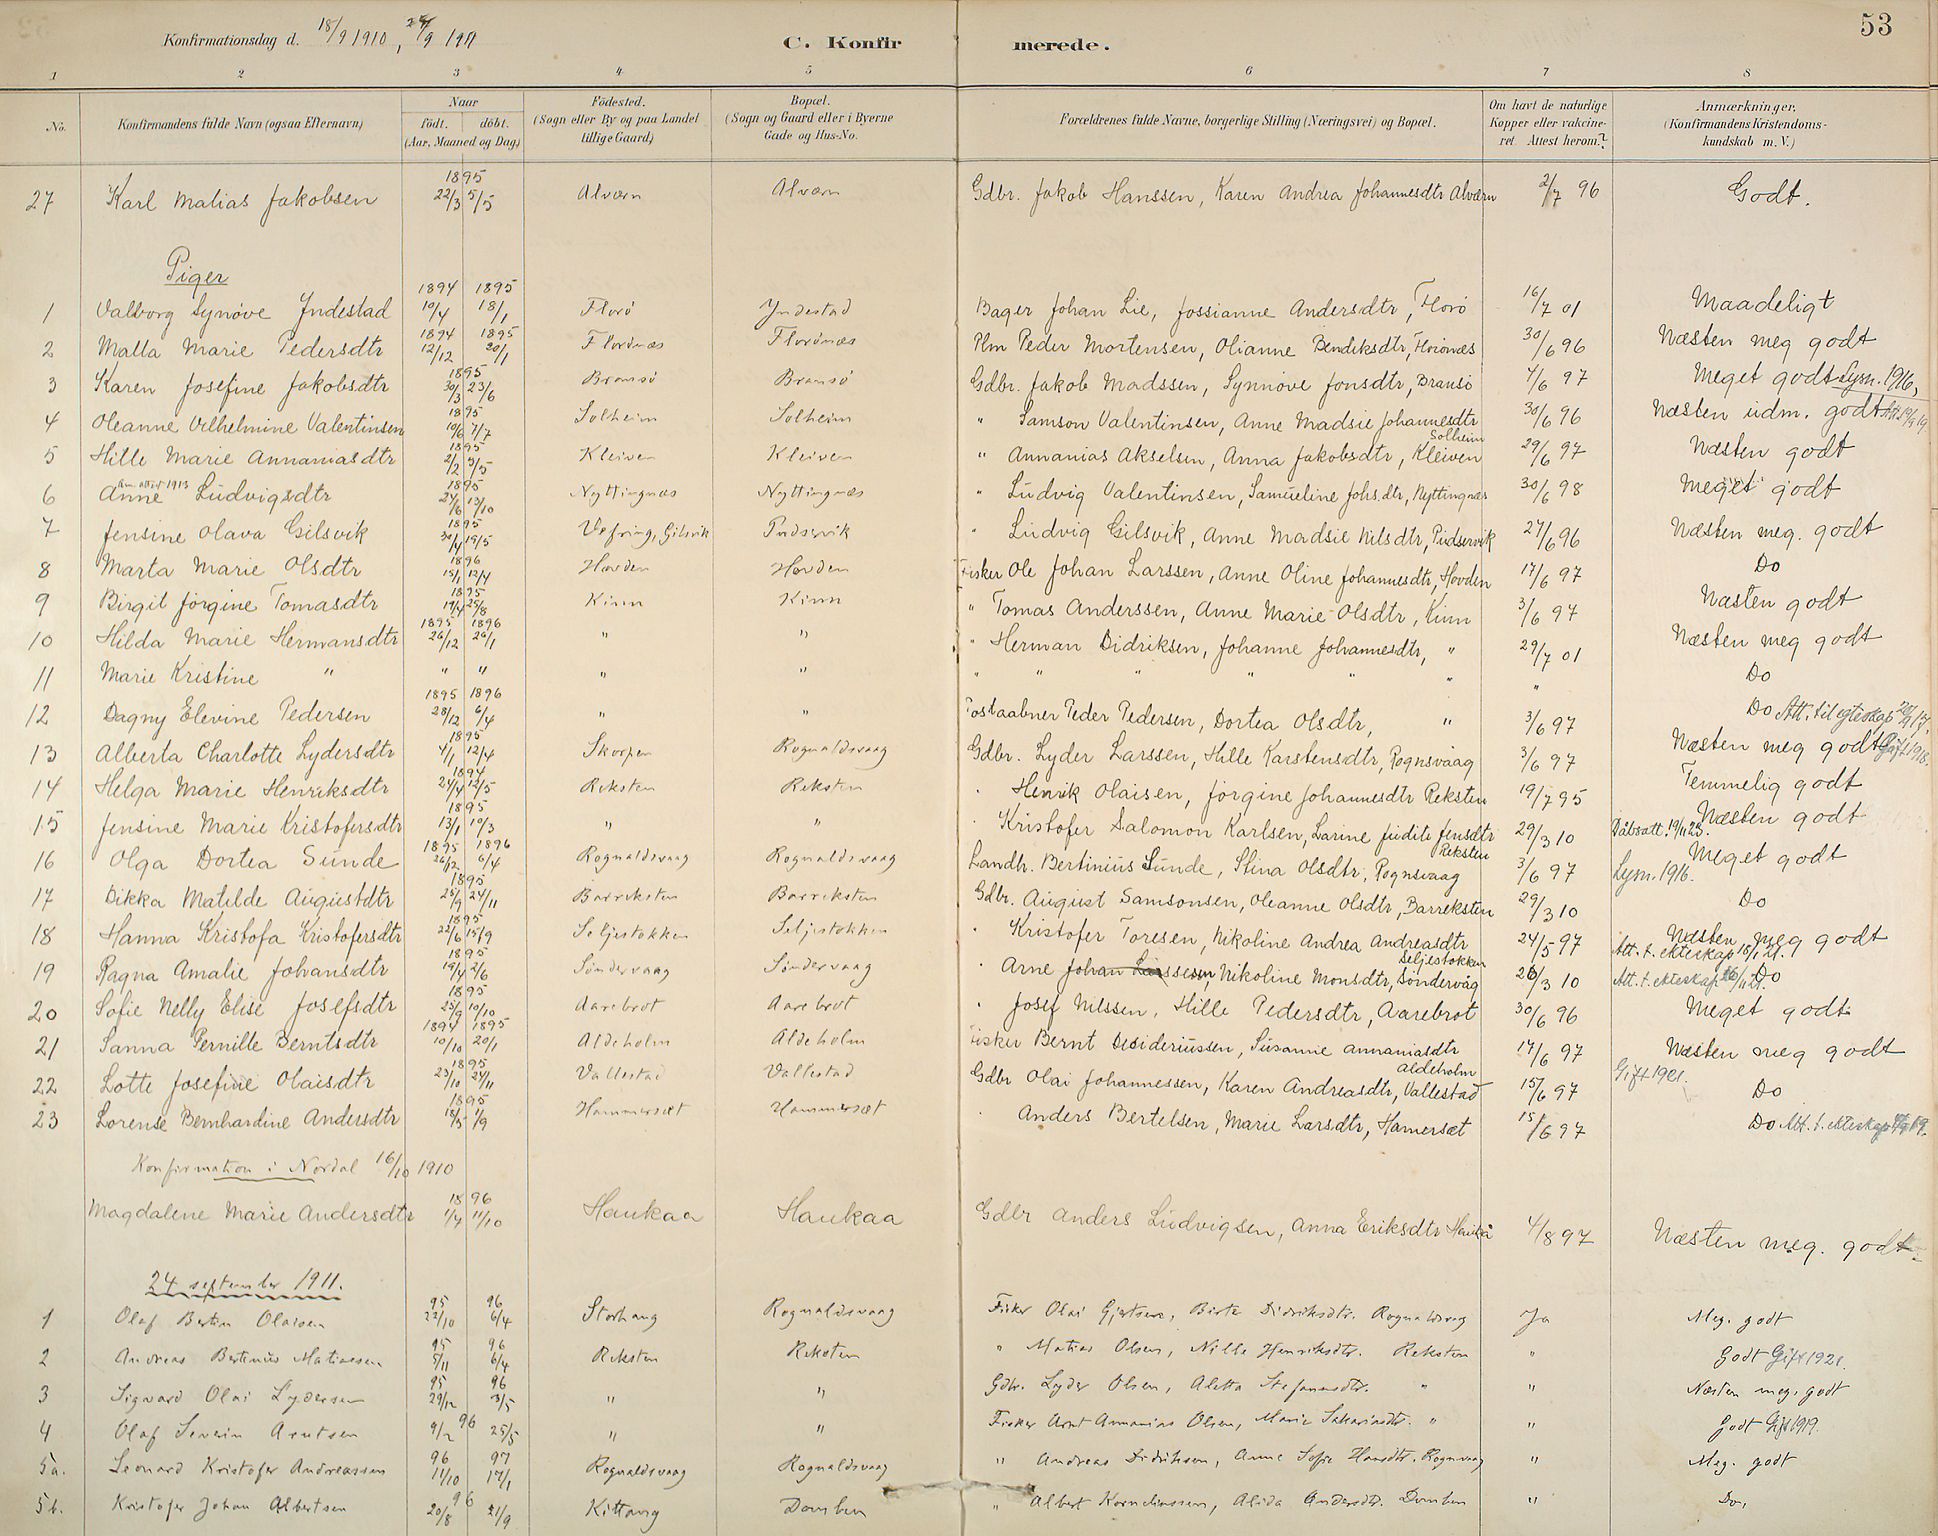 53
Konfirmationsdag d. 18/9 1910, 24/9 1911 C. Konfirmerede.
1 2 3 4 5 6 7 8
No. Konfirmandens fulde Navn (ogsaa Efternavn) Naar født. døbt. (Aar, Maaned og Dag) Födested. (Sogn eller By og paa Landet tillige Gaard) Bopæl. (Sogn og Gaard eller i Byerne Gade og Hus-No. Forældrenes fulde Navne, borgerlige Stilling (Næringsvei) og Bopæl. Om havt de naturlige Kopper eller vakcineret. Attest herom? Anmærkninger. (Konfirmandens Kristendomskundskab m. V.)
27 Karl Matias Jakobsen 1895 22/3 5/5 Alværn Alværn Gdbr. Jakob Hanssen, Karen Andrea Johannesdtr Alværn 2/7 96 Godt.
Piger
1 Valborg Synøve Indestad 1894 10/4 1895 18/1 Florø Yndestad Bager Johan Lie, Jossianne Andersdtr, Florø 16/7 01 Maadeligt
2 Malla Marie Pedersdtr 1894 12/12 1895 20/1 Florønæs Florønæs Hm Peder Mortensen, Olianne Bendiksdtr, Florønæs 30/6 96 Næsten meg godt
3 Karen Josefine Jakobsdtr 1895 30/3 23/6 Bransø Bransø Gdbr. Jakob Madssen, Synnøve Jonsdtr, Bransø 4/6 97 Meget godt Lysn. 1916,
4 Oleanne Vilhelmine Valentinsen 1895 10/6 7/7 Solheim Solheim " Samson Valentinsen, Anne Madsie Johannesdtr Solheim 30/6 96 Næsten udm. godt
5 Hille Marie Annaniasdtr 1895 2/2 5/5 Kleiven Kleiven " Annanias Akselsen, Anna Jakobsdtr, Kleiven 29/6 97 Næsten godt
6 Anne Ludvigsdtr 1895 24/6 13/10 Nyttingnæs Nyttingnæs " Ludvig Valentinsen, Samueline Johs.dtr, Nyttingnæs 30/6 98 Meget godt
7 Jensine Olava Gilsvik 1895 30/4 19/5 Vefring, Gilsvik Pudservik " Ludvig Gilsvik, Anne Madsie Nilsdtr, Pudservik 27/6 96 Næsten meg. godt
8 Marta Marie Olsdtr 1896 15/1 12/4 Hovden Hovden Fisker Ole Johan Larssen, Anne Oline Johannesdtr, Hovden 17/6 97 Do
9 Birgit Jørgine Tomasdtr 1895 19/4 25/8 Kinn Kinn " Tomas Anderssen, Anne Marie Olsdtr, Kinn 3/6 97 Næsten godt
10 Hilda Marie Hermansdtr 1895 26/12 1896 26/1 " " " Herman Didriksen, Johanne Johannesdtr, " 29/7 01 Næsten meg godt
11 Marie Kristine " " " " " " " " " " " " Do
12 Dagny Elevine Pedersen 1895 28/12 1896 6/4 " " Postaabner Peder Pedersen, Dortea Olsdtr, " 3/6 97 Do Att. til egteskap
13 Alberta Charlotte Lydersdtr 1895 4/1 12/4 Skorpen Rognaldsvaag Gdbr. Lyder Larssen, Hille Karstensdtr, Rognsvaag 3/6 97 Næsten meg godt Gift 1918.
14 Helga Marie Henriksdtr 1894 24/4 12/5 Reksten Reksten " Henrik Olaisen, Jørgine Johannesdtr Reksten 19/7 95 Temmelig godt
15 Jensine Marie Kristofersdtr 1895 13/1 10/3 " " " Kristofer Salomon Karlsen, Larine Judite Jensdtr Reksten 29/3 10 Dåbsatt. 19/11 23. Næsten godt
16 Olga Dortea Sunde 1895 26/12 1896 6/4 Rognaldsvaag Rognaldsvaag Landh. Bertinius Sunde, Stina Olsdtr, Rognsvaag 3/6 97 Lysn. 1916. Meget godt
17 Dikka Matilde Augustdtr 1895 25/9 24/11 Barreksten Barreksten Gdbr. August Samsonsen, Oleanne Olsdtr, Barreksten 29/3 10 Do
18 Hanna Kristofa Kristofersdtr 1895 22/6 15/9 Seljestokken Seljestokken " Kristofer Toresen, Nikoline Andrea Andreasdtr Seljestokken 24/5 97 Næsten meg godt Att. t. ekteskap 18/1 21.
19 Ragna Amalie Johansdtr 1895 19/4 2/6 Søndervaag Søndervaag " Arne Johan Larssen, Nikoline Monsdtr, Søndervåg 26/3 10 Att. t. ekteskap Do
20 Sofie Nelly Elise Josefsdtr 1895 25/9 10/10 Aarebrot Aarebrot " Josef Nilssen, Hille Pedersdtr, Aarebrot 30/6 96 Meget godt
21 Sanna Pernille Berntsdtr 1894 10/10 1895 20/1 Aldeholm Aldeholm Fisker Bernt Desideriussen, Susanne Annaniasdtr Aldeholm 17/6 97 Næsten meg godt
22 Lotte Josefine Olaisdtr 1895 23/10 24/11 Vallestad Vallestad Gdbr Olai Johannessen, Karen Andreasdtr, Vallestad 15/6 97 Gift 1921. Do
23 Lorense Bernhardine Andersdtr 1895 18/5 1/9 Hammersæt Hammersæt " Anders Bertelsen, Marie Larsdtr, Hamersæt 15/6 97 Do Att. t. ekteskap
Konfirmation i Nordal 16/10 1910
Magdalene Marie Andersdtr 1896 1/4 11/10 Haukaa Haukaa Gdbr Anders Ludvigsen, Anna Eriksdtr Haukå 4/8 97 Næsten meg. godt
24 september 1911.
1 Olaf Bertin Olaisen 95 22/10 96 6/4 Storhaug Rognaldsvaag Fisker Olai Gjertsen, Birte Didriksdtr. Rognaldsvag Ja Meg. godt
2 Andreas Bertinius Matiassen 95 5/11 96 6/4 Reksten Reksten " Matias Olsen, Nille Henriksdtr. Reksten " Godt Gift 1921.
3 Sigvard Olai Lydersen 95 29/12 96 3/5 " " Gdbr. Lyder Olsen, Aletta Stefanusdtr. " " Næsten meg. godt
4 Olaf Severin Arntsen 96 9/2 25/5 " " Fisker Arnt Annanias Olsen, Marie Sakariasdtr. " " Godt Gift 1919.
5a. Leonard Kristofer Andreassen 96 11/10 97 17/1 Rognaldsvaag Rognaldsvaag " Andreas Didriksen, Anne Sofie Hansdtr. Rognvaag " Meg. godt
5b. Kristofer Johan Albertsen 96 20/8 21/9 Kittang Domben " Albert Korneliussen, Alida Andersdtr. Domben " Do,